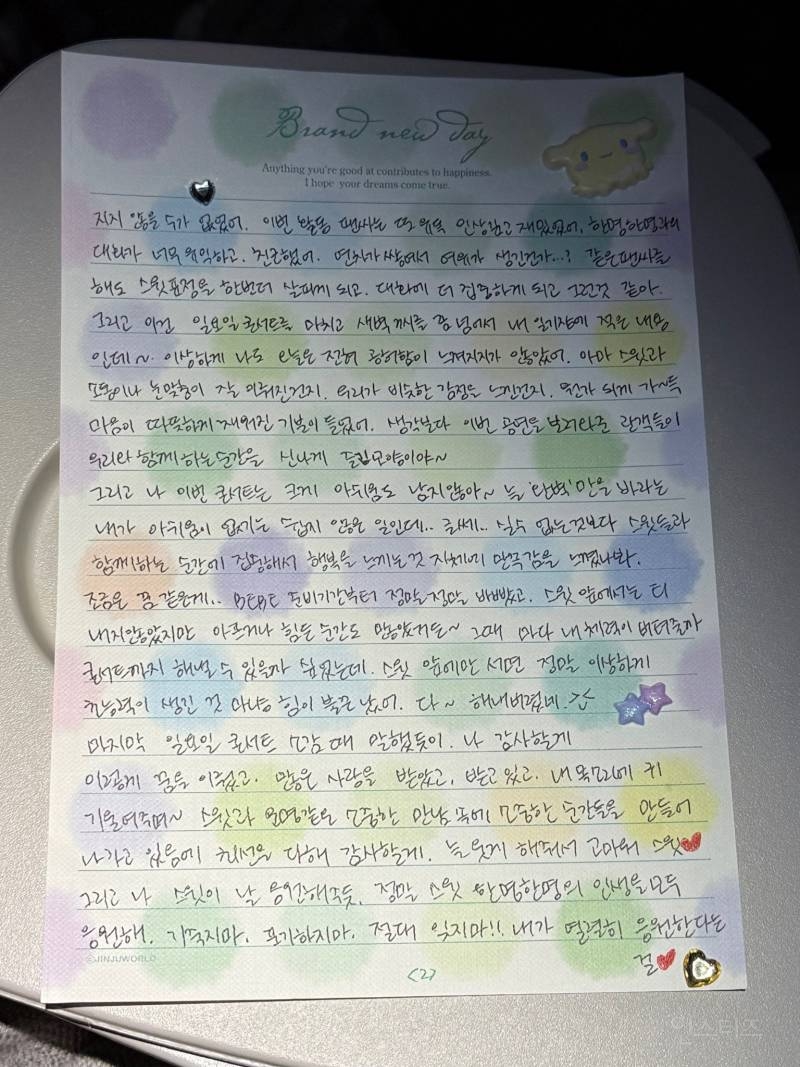 Brand new day
Anything you're good at contributes to happiness.
I hope your dreams come true.
지지 않을 수가 없었어. 이번 활동 팬싸는 더 유독 인상깊고 재밌었어, 한명한명과의
대화가 너무 유익하고. 친근했어. 연차가 쌓여서 여유가 생긴건가...? 같은팬싸를
해도 스윗표정을 한번더 살피게 되고. 대화에 더 집중하게 되고 그런것 같아.
그리고 이건 일요일 콘서트를 마치고 새벽 4시를 좀 넘어서 내 일기장에 적은 내용
인데~. 이상하게 나도 오늘은 전혀 공허함이 느껴지지가 않았어. 아마 스윗과
소통이나 눈맞춤이 잘 이뤄진건지. 우리가 비슷한 감정을 느낀건지. 뭔가 되게 가~득
마음이 따뜻하게 채워진 기분이 들었어. 생각보다 이번 공연을 보러와준 관객들이
우리와 함께하는 순간을 신나게 즐긴모양이야~
그리고 나 이번 콘서트는 크게 아쉬움도 남지않아~ 늘 '완벽'만을 바라는
내가 아쉬움이 없기는 쉽지 않은 일인데.. 글쎄.. 실수 없는것보다 스윗들과
함께하는 순간에 집중해서 행복을 느끼는것 자체에 만족감을 느꼈나봐.
조금은 꿈 같은게.. BEBE 준비기간부터 정말정말 바빴고. 스윗 앞에서는 티
내지않았지만 아프거나 힘든 순간도 많았거든~ 그때 마다 내 체력이 버텨줄까
콘서트까지 해낼 수 있을까 싶었는데. 스윗 앞에만 서면 정말 이상하게
초능력이 생긴 것 마냥 힘이 불끈 났어. 다~ 해내버렸네.><
마지막 일요일 콘서트 소감 때 말했듯이. 나 감사할게
이렇게 꿈을 이뤘고. 많은 사랑을 받았고, 받고 있고. 내 목소리에 귀
기울여주며~ 스윗과 운명같은 소중한 만남 속에 소중한 순간들을 만들어
나가고 있음에 최선을 다해 감사할게. 늘 웃게 해줘서 고마워 스윗❤
그리고 나 스윗이 날 응원해주듯, 정말 스윗 한명한명의 인생을 모두
응원해. 기죽지마. 포기하지마. 절대 잊지마!! 내가 열렬히 응원한다는
걸❤
©JINJUWORLD
<2>
인스티즈